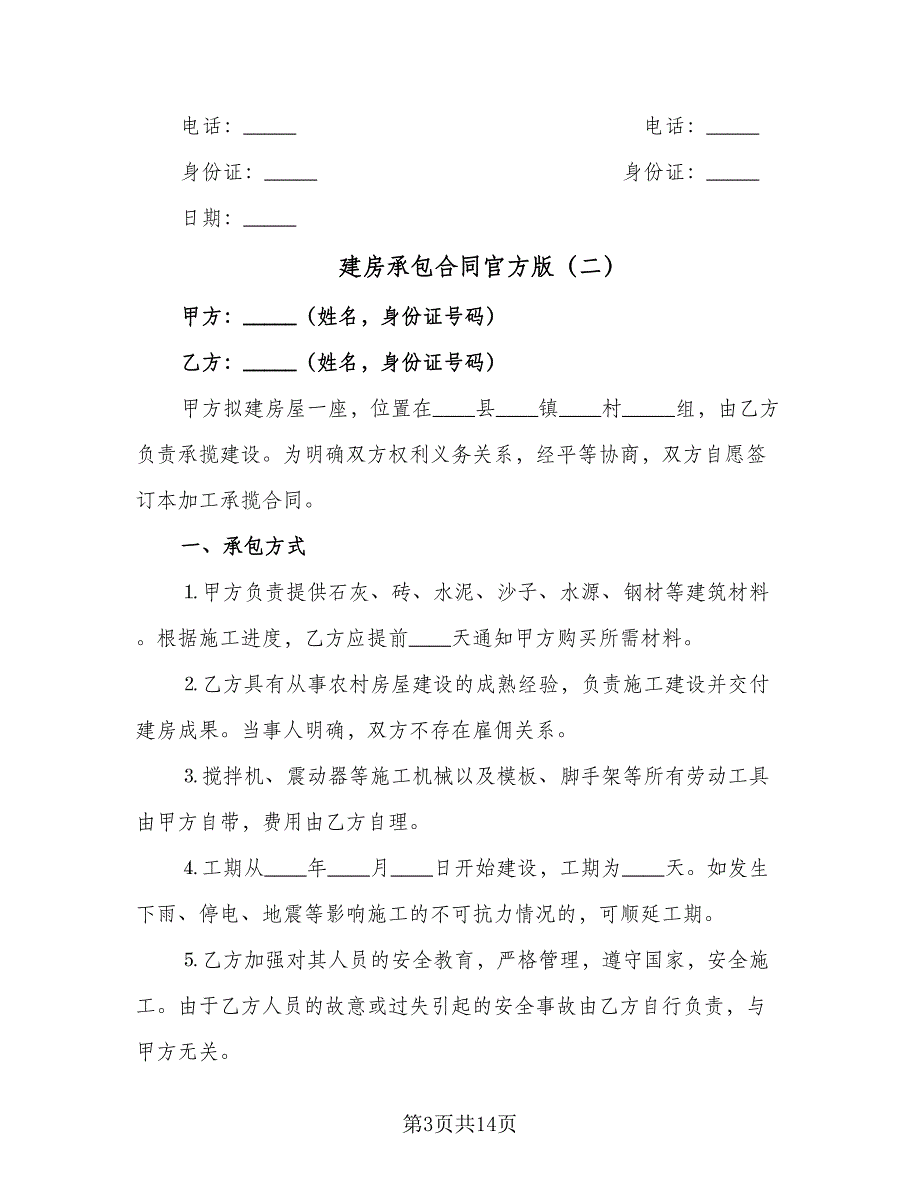 电话：_____ 电话：_____
身份证：_____ 身份证：_____
日期：_____
建房承包合同官方版（二）
甲方：_____（姓名，身份证号码）
乙方：_____（姓名，身份证号码）
甲方拟建房屋一座，位置在____县____镇____村_____组，由乙方
负责承揽建设。为明确双方权利义务关系，经平等协商，双方自愿签
订本加工承揽合同。
一、承包方式
1.甲方负责提供石灰、砖、水泥、沙子、水源、钢材等建筑材料
。根据施工进度，乙方应提前____天通知甲方购买所需材料。
2.乙方具有从事农村房屋建设的成熟经验，负责施工建设并交付
建房成果。当事人明确，双方不存在雇佣关系。
3.搅拌机、震动器等施工机械以及模板、脚手架等所有劳动工具
由甲方自带，费用由乙方自理。
4.工期从____年____月____日开始建设，工期为____天。如发生
下雨、停电、地震等影响施工的不可抗力情况的，可顺延工期。
5.乙方加强对其人员的安全教育，严格管理，遵守国家，安全施
工。由于乙方人员的故意或过失引起的安全事故由乙方自行负责，与
甲方无关。
第3页共14页